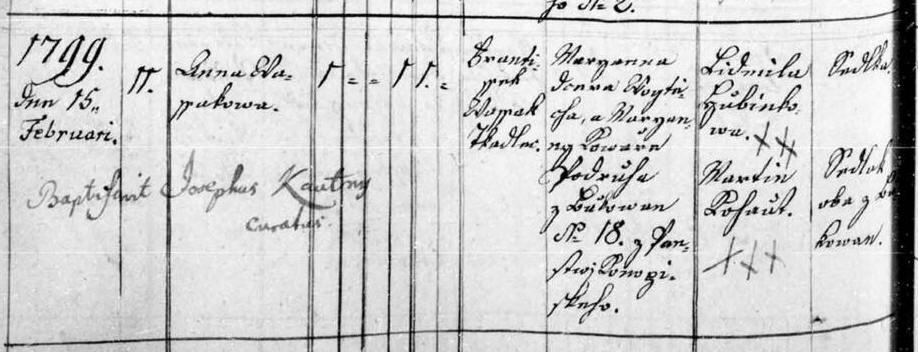 ho Nº 2.
1799.
dnn 15.
Februari.
11.
Anna Wa=
ssakowa.
1 = = 1 1. =
Franti=
ssek
Wossak
Tkadlec.
Maryanna
dcera Wogtie=
cha, a Maryan=
ny Kowarz
Podruha
z Bukowan
Nº 18. z Pan=
stwj Konopi=
skeho.
Lidmila
Hubinko=
wa. XX
Martin
Kohaut.
XXX
Sedlka
Sedlak
oba z Bu
kowan.
Baptisavit Josephus Kautny
curatus.